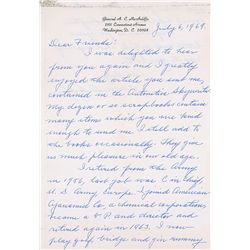 General A. C. McAuliffe
Connecticut Avenue
Washington, D. C. 20008
July 6, 1969
Dear Friends:
I was delighted to hear
from you again and I greatly
enjoyed the article you sent me,
contained in the Automotive
My dozen or so scrapbooks contain
many items which you are kind
enough to send me. I still add to
the books occasionally. They give
us much pleasure in our old age.
I retired from the Army
in 1956, last job was C in Chief,
U. S. Army Europe. I joined American
Cyanamid Co a chemical corporation,
became a V P and director and
retired again in 1963. I now
play golf, bridge and gin rummy